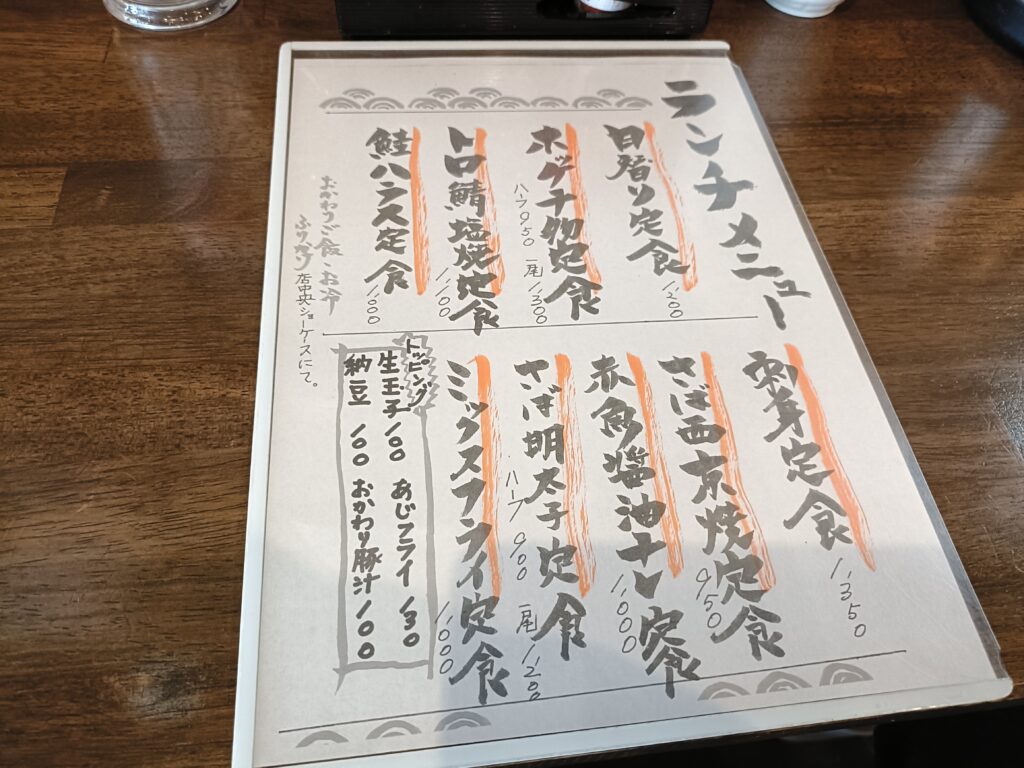 ランチメニュー
日替り定食
1,200
ホッケ干物定食
ハーフ950 一尾1,300
トロ鯖塩焼定食
1,100
鮭ハラス定食
1,000
おかわりご飯・お冷
ふりかけ 店中央ショーケースにて。
刺身定食
1,350
さば西京焼定食
950
赤魚醤油干し定食
1,000
さば明太子定食
ハーフ900 一尾1,200
ミックスフライ定食
1,000
トッピング
生玉子100 あじフライ130
納豆100 おかわり豚汁100